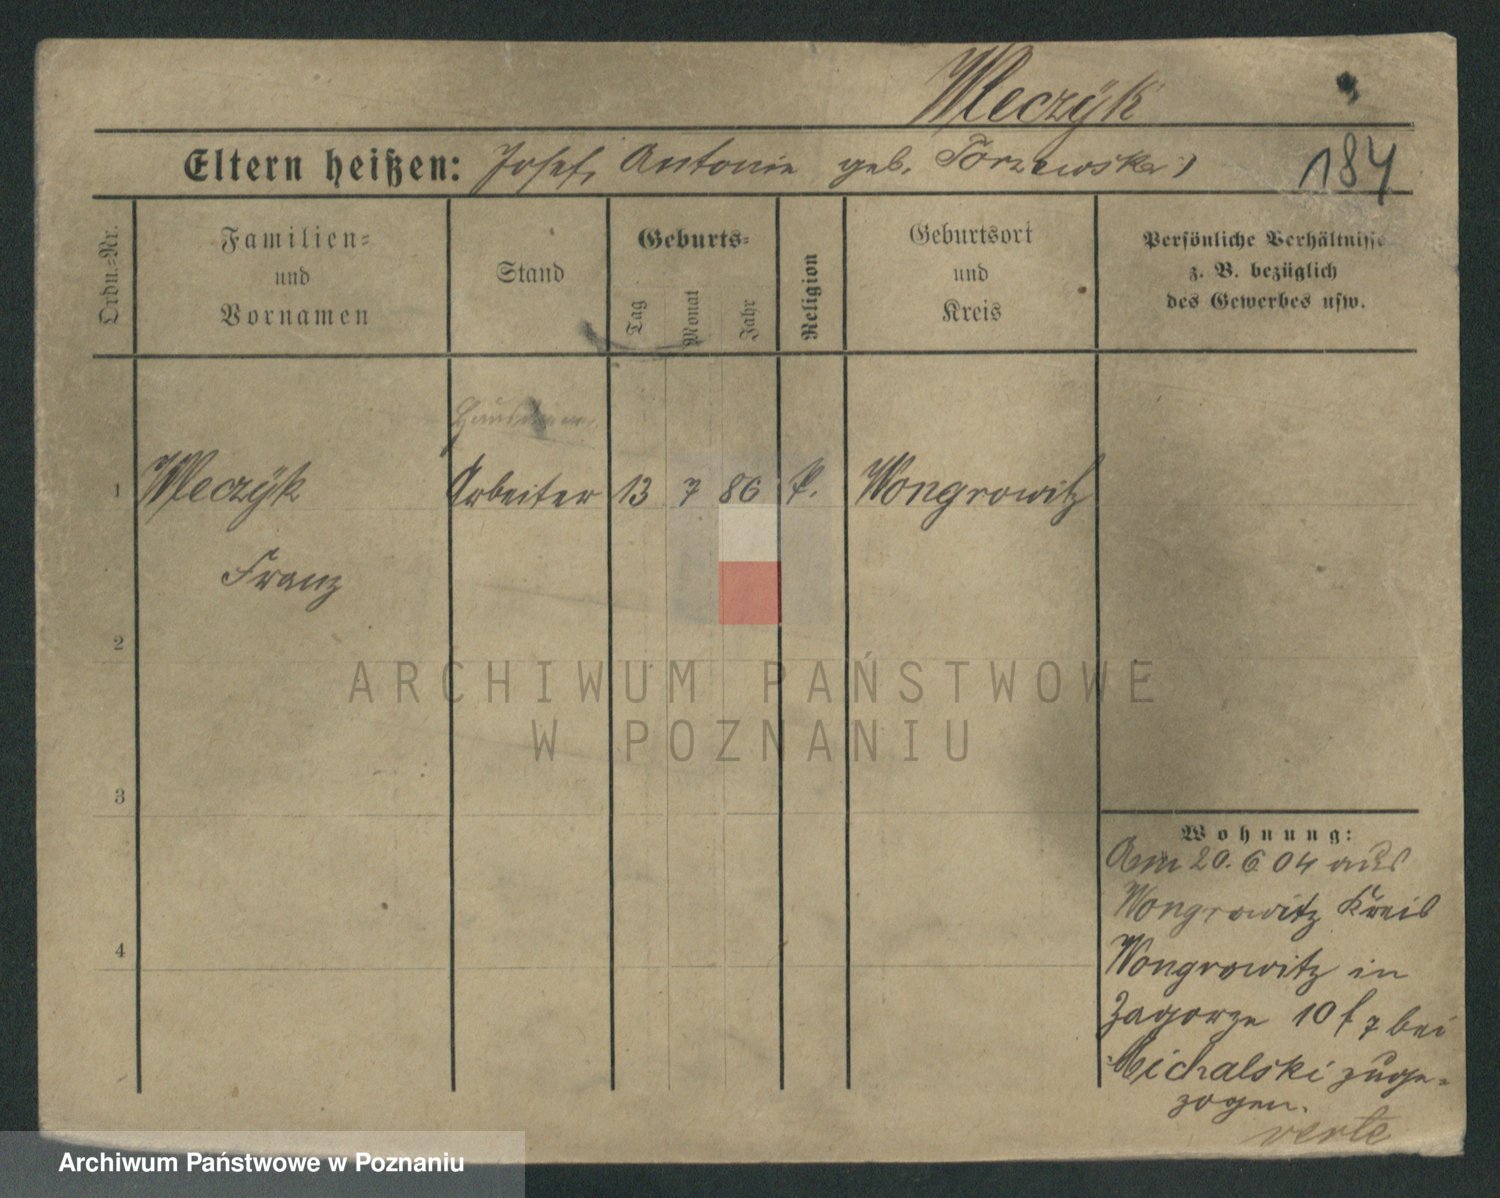 Mleczÿk
Eltern heißen: Josef, Antonie geb. Torzewska
184
Ordn.=Nr.
Familien=
und
Vornamen
Stand
Geburts=
Tag
Monat
Jahr
Religion
Geburtsort
und
Kreis
Persönliche Verhältnisse
z. B. bezüglich
des Gewerbes usw.
1 Mleczÿk Arbeiter 13 7 86 k. Wongrowitz
Franz
2
3
4
ARCHIWUM PAŃSTWOWE
W POZNANIU
Wohnung:
Am 20.6 04 aus
Wongrowitz Kreis
Wongrowitz in
Zagorze 10 bei
Michalski zuge-
zogen.
verte
Archiwum Państwowe w Poznaniu